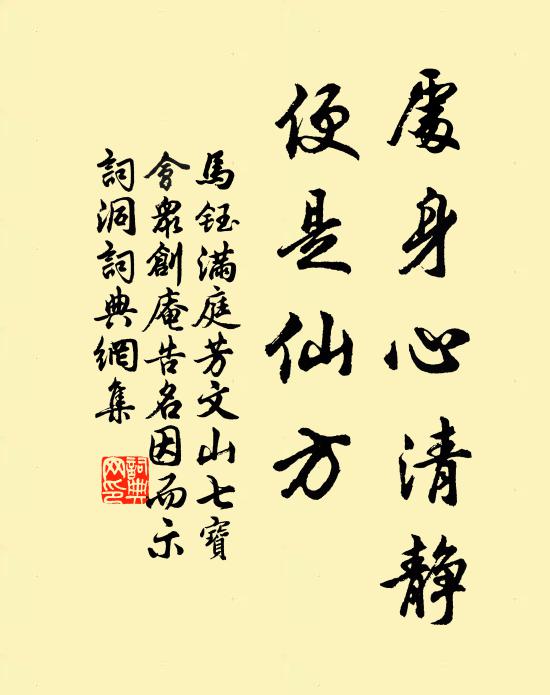 處身心清静
便是仙方
馬鈺滿庭芳文山七寳
會衆創庵告名因而示
詞洞詞典網集
詞典網印